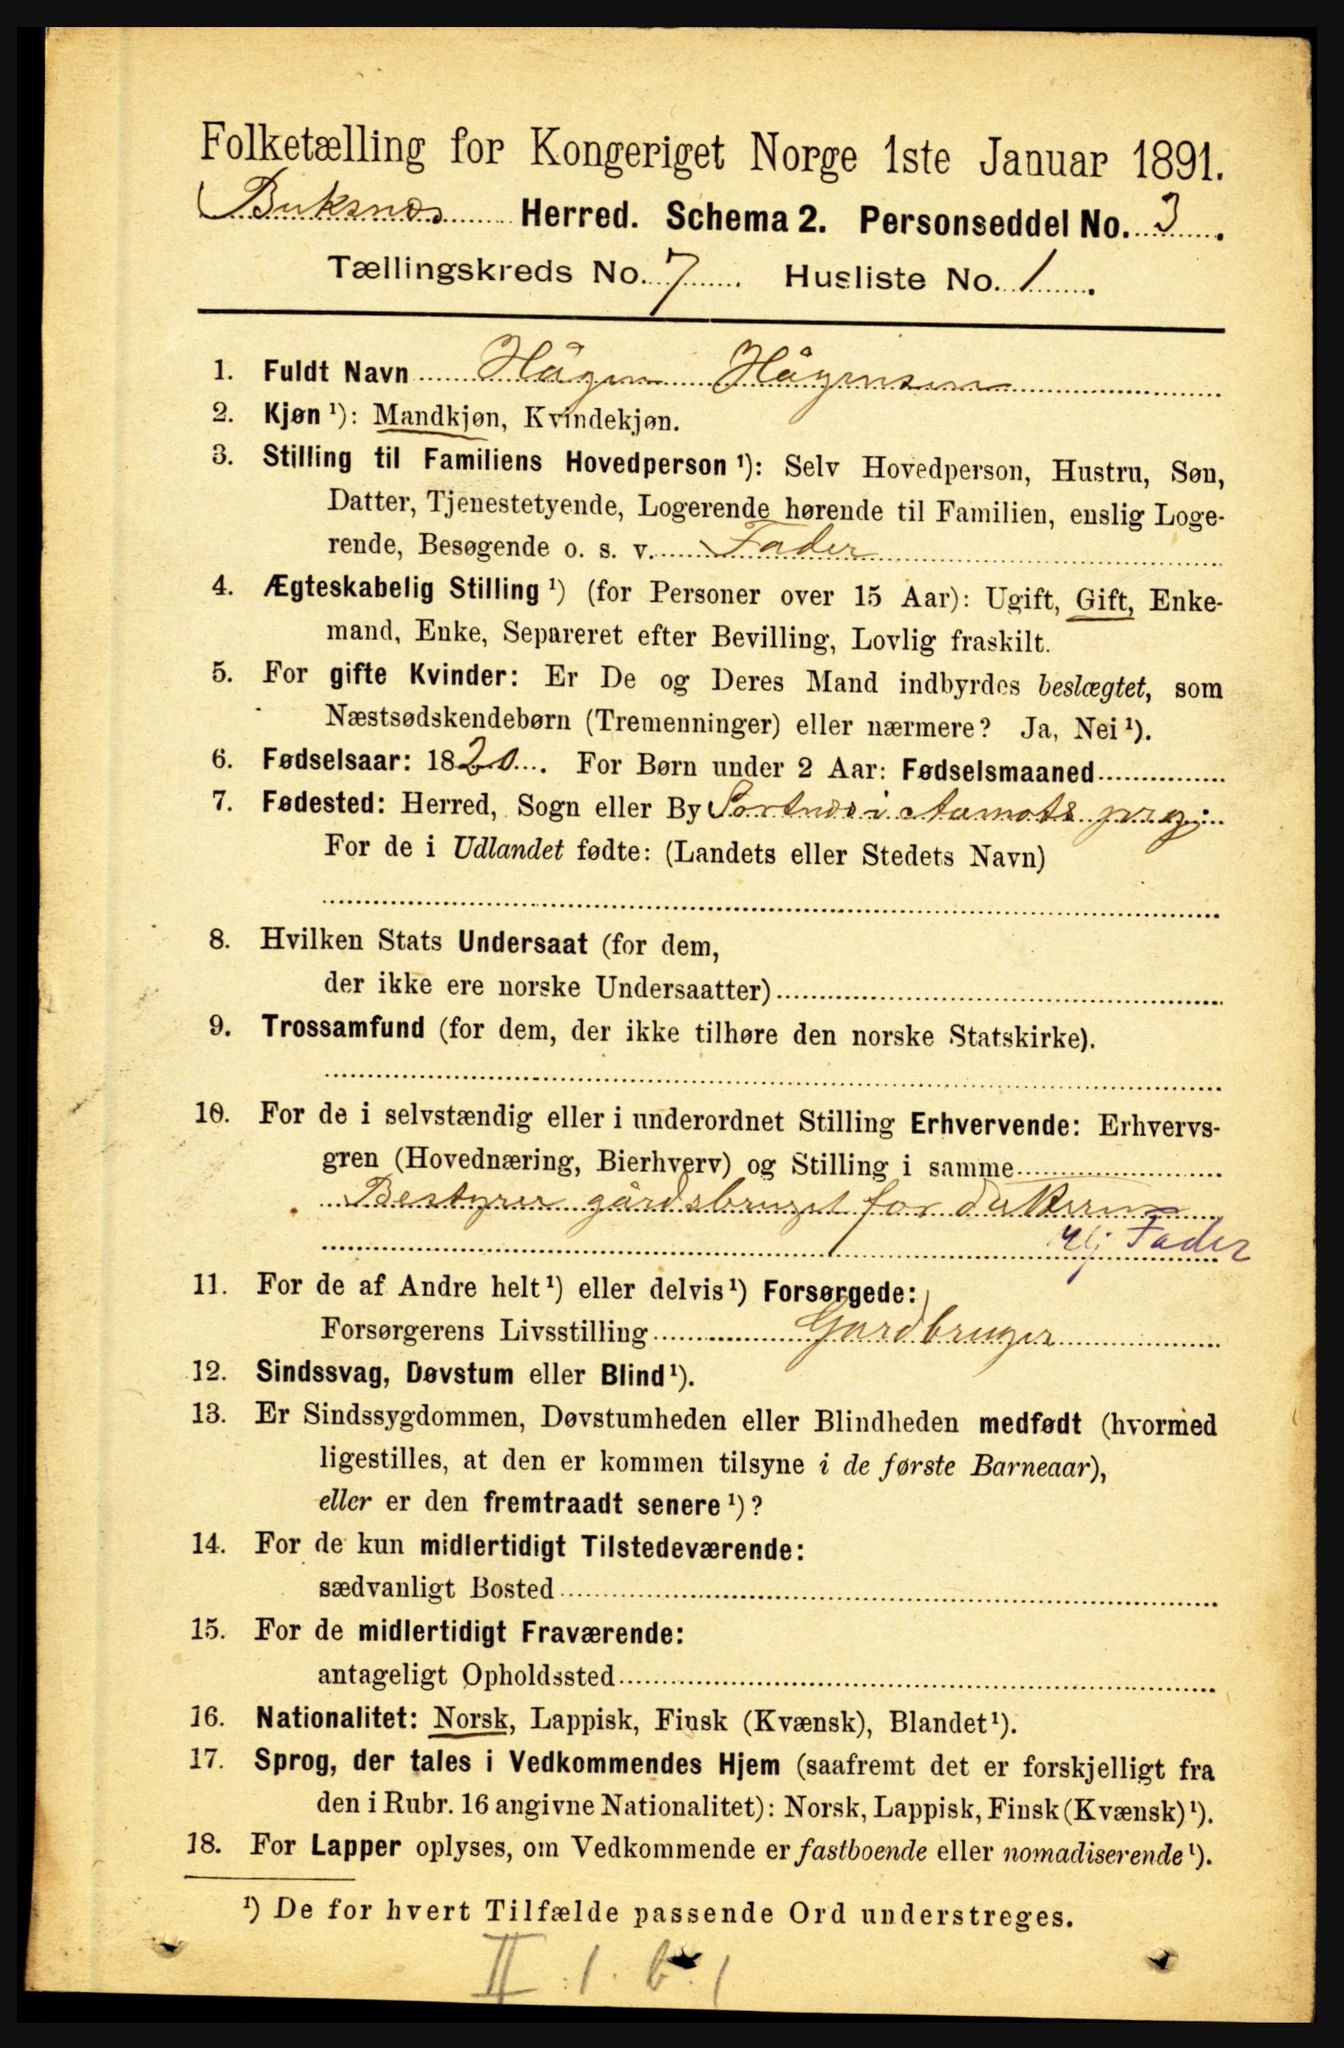 Folketælling for Kongeriget Norge 1ste Januar 1891.
Buksnes Herred. Schema 2. Personseddel No. 3.
Tællingskreds No. 7. Husliste No. 1.
1. Fuldt Navn Hågen Hågensen
2. Kjøn ¹): Mandkjøn, Kvindekjøn.
3. Stilling til Familiens Hovedperson ¹): Selv Hovedperson, Hustru, Søn,
Datter, Tjenestetyende, Logerende hørende til Familien, enslig Loge-
rende, Besøgende o. s. v. Fader
4. Ægteskabelig Stilling ¹) (for Personer over 15 Aar): Ugift, Gift, Enke-
mand, Enke, Separeret efter Bevilling, Lovlig fraskilt.
5. For gifte Kvinder: Er De og Deres Mand indbyrdes beslægtet, som
Næstsødskendebørn (Tremenninger) eller nærmere? Ja, Nei ¹).
6. Fødselsaar: 1820. For Børn under 2 Aar: Fødselsmaaned
7. Fødested: Herred, Sogn eller By i Aamots prg:
For de i Udlandet fødte: (Landets eller Stedets Navn)
8. Hvilken Stats Undersaat (for dem,
der ikke ere norske Undersaatter)
9. Trossamfund (for dem, der ikke tilhøre den norske Statskirke).
10. For de i selvstændig eller i underordnet Stilling Erhvervende: Erhvervs-
gren (Hovednæring, Bierhverv) og Stilling i samme
Bestyrer gårdsbruget for
Fader
11. For de af Andre helt ¹) eller delvis ¹) Forsørgede:
Forsørgerens Livsstilling Gardbruger
12. Sindssvag, Døvstum eller Blind ¹).
13. Er Sindssygdommen, Døvstumheden eller Blindheden medfødt (hvormed
ligestilles, at den er kommen tilsyne i de første Barneaar),
eller er den fremtraadt senere ¹)?
14. For de kun midlertidigt Tilstedeværende:
sædvanligt Bosted
15. For de midlertidigt Fraværende:
antageligt Opholdssted
16. Nationalitet: Norsk, Lappisk, Finsk (Kvænsk), Blandet ¹).
17. Sprog, der tales i Vedkommendes Hjem (saafremt det er forskjelligt fra
den i Rubr. 16 angivne Nationalitet): Norsk, Lappisk, Finsk (Kvænsk) ¹).
18. For Lapper oplyses, om Vedkommende er fastboende eller nomadiserende ¹).
¹) De for hvert Tilfælde passende Ord understreges.
II. 1. b. 1